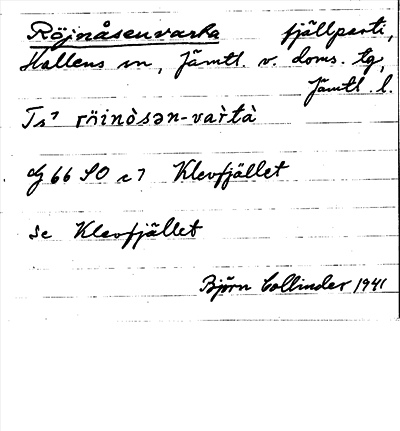 Röjnåsenvarta fjällparti,
Hallens sn, Jämtl. v. doms. tg,
Jämtl. l.
röinòsən-vaṙtà
66 SO Klevfjället
se Klevfjället
Björn Collinder 1941